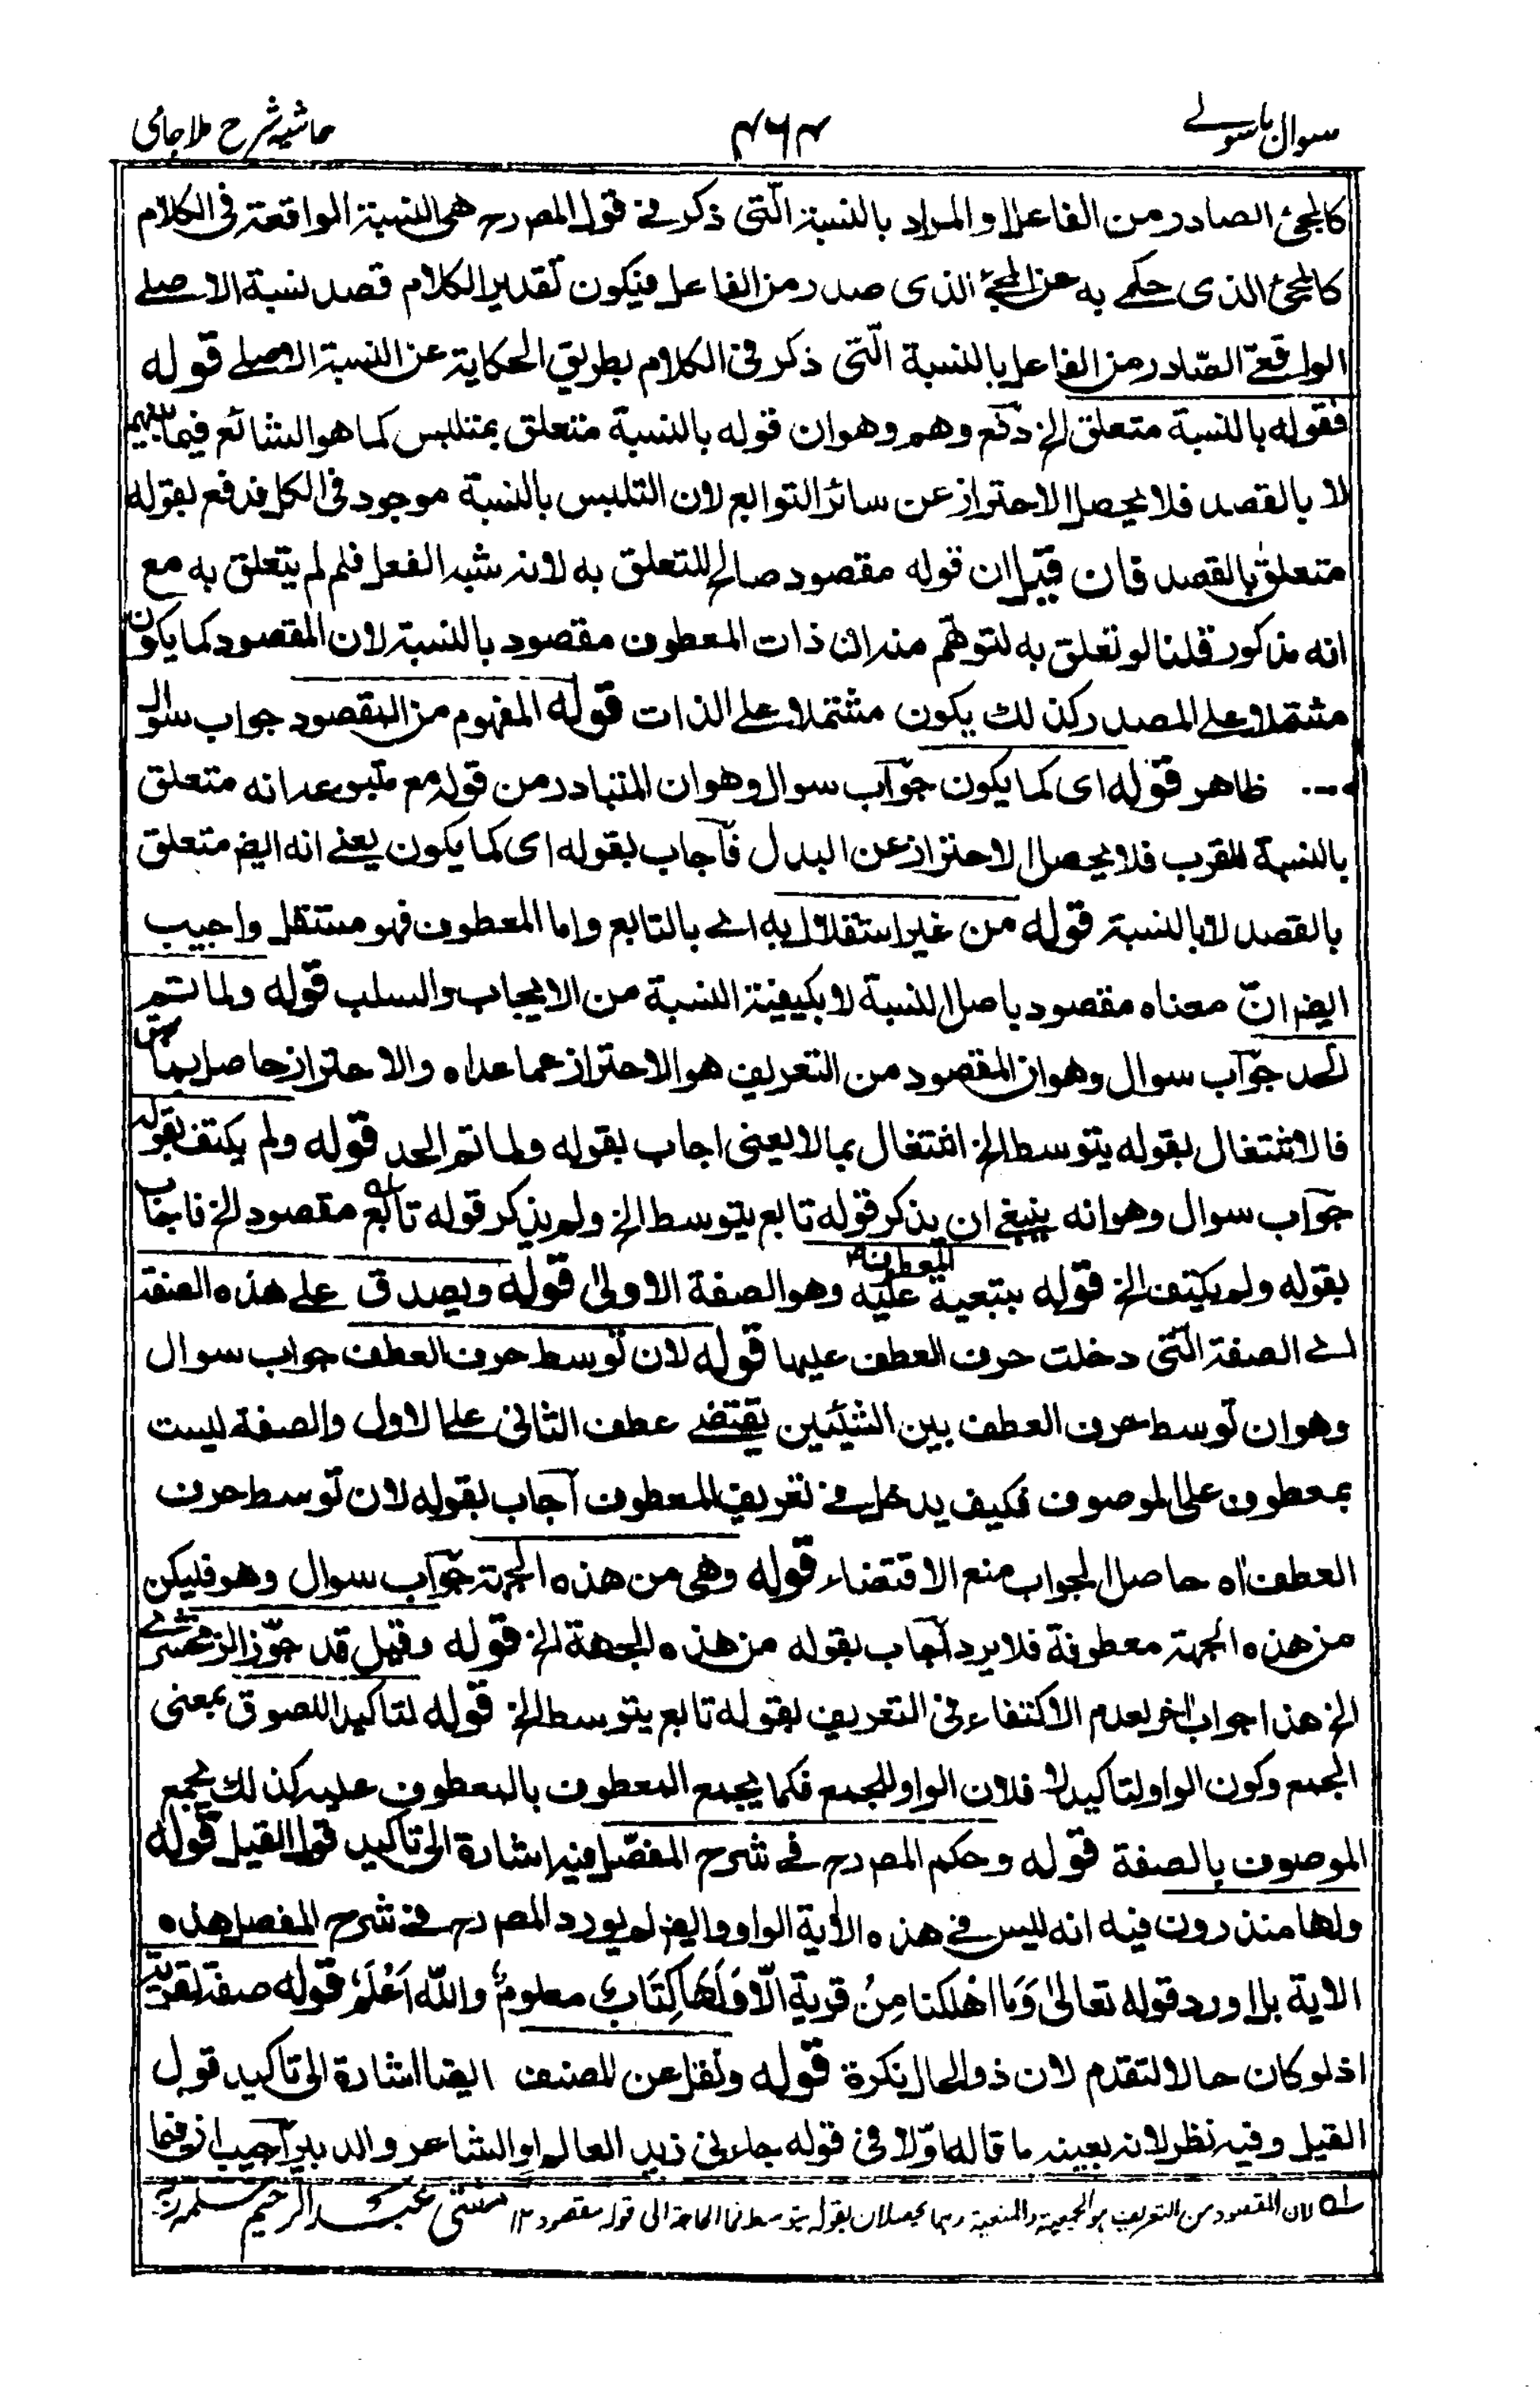 سوال باسولے
۴۶۴
حاشیہ شرح ملا جامی
كالمجئ الصادر من الفاعل والمراد بالنسبة الّتى ذكر فے قول المصرح هى النسبة الواقعة فى الكلام
كالمجئ الذى حكے به عن المجئ الذى صدر من الفاعل فيكون تقدير الكلام قصد نسبة الاصلے
الواقعىّ الصّادر من الفاعل بالنسبة الّتى ذكر فى الكلام بطريق الحكاية عن النسبة الاصلے قوله
فقوله بالنسبة متعلق الخ دفع وهم وهو ان قوله بالنسبة متعلق بمتلبس كما هو الشائع فيما بينهم
لا بالقصد فلا يحصل الاحتراز عن سائر التوابع لان التلبس بالنسبة موجود فى الكل فدفع بقوله
متعلق بالقصد فان قيل ان قوله مقصود صالح للتعلق به لانه شبه الفعل فلم لم يتعلق به مع
انه مذكور قلنا لو تعلق به لتوهّم منه ان ذات المعطوف مقصود بالنسبة لان المقصود كما يكون
مشتملا على المصدر كذلك يكون مشتملا على الذات قوله المفهوم من المقصود جواب سوال
ظاهر قوله اى كما يكون جوآب سوال وهو ان المتبادر من قوله مع متبوعه انه متعلق
بالنسبة للقرب فلا يحصل الاحتراز عن البدل فآجاب بقوله اى كما يكون يعنے انه ايضر متعلق
بالقصد لا بالنسبة قوله من غير استقلال به اے بالتابع واما المعطوف فهو مستقل واجيب
ايضر انّ معناه مقصود باصل النسبة لا بكيفية النسبة من الايجاب والسلب قوله ولما تم
الحد جوآب سوال وهو ان المقصود من التعريف هو الاحتراز عما عداه والاحتراز حاصل بما سبق
فالاشتغال بقوله يتوسط الخ اشتغال بما لا يعنى اجاب بقوله ولما تم الحد قوله ولم يكتف بقوله
جوآب سوال وهو انه ينبغے ان يذكر قوله تابع يتوسط الخ ولم يذكر قوله تابع مقصود الخ فاجاب
بقوله ولم يكتف الخ قوله بتبعية المعطوف عليه وهو الصفة الاولى قوله ويصدق على هذه الصفة
اے الصفة الّتى دخلت حرف العطف عليها قوله لان توسط حرف العطف جواب سوال
وهو ان توسط حرف العطف بين الشيئين يقتضے عطف الثانى على الاول والصفة ليست
بمعطوف على الموصوف فكيف يدخل فے تعريف المعطوف آجاب بقوله لان توسط حرف
العطف اه حاصل الجواب منع الاقتضاء قوله وهى من هذه الجهة جوآب سوال وهو فليكن
من هذه الجهة معطوفة فلا يرد آجاب بقوله من هذه الجهة الخ قوله وقيل قد جوّز الزمخشرے
الخ هذا جواب اخر لعدم الاكتفاء فى التعريف بقوله تابع يتوسط الخ قوله لتاكيد اللصوق بمعنى
الجمع وكون الواو لتاكيد فلان الواو للجمع فكما يجمع المعطوف بالمعطوف عليه كذلك يجمع
الموصوف بالصفة قوله وحكم المصرح فے شرح المفصّل فيه اشارة الى تاكيد قول القيل قوله
ولها منذرون فيه انه ليس فے هذه الآية الواو وايضر لم يورد المصرح فے شرح المفصل هذه
الاية بل اورد قوله تعالىٰ وَمَا اَهْلَكنا مِنْ قرية الّا وَلَهَا كِتَابٌ معلومٌ والله اَعْلَمُ قوله صفة لقرية
اذ لو كان حالا لتقدم لان ذو الحال نكرة قوله ونقل عن المصنف ايضا اشارة الى تاكيد قول
القيل وفيه نظر لانه بعينه ما قاله اوّلا فى قوله جاءنى زيد العالم والشاعر والدبير آجيب ان فيما
لان المقصود من التعريف هو الجمعية والمنعية وهما يحصلان بقوله يتوسط فما الحاجة الى قوله مقصود ۱۲ منشى عبد الرحيم سلمه ربه